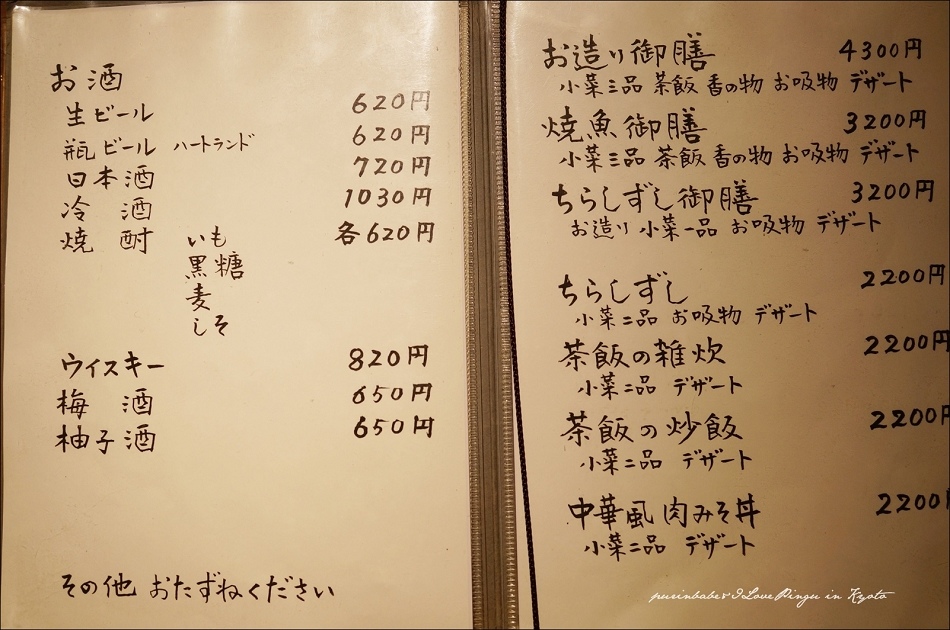 お酒
生ビール 620円
瓶ビール ハートランド 620円
日本酒 720円
冷 酒 1030円
焼 酎 いも 各620円
黒糖
麦
しそ
ウイスキー 820円
梅 酒 650円
柚子酒 650円
その他 おたずねください
お造り御膳 4300円
小菜三品 茶飯 香の物 お吸物 デザート
焼魚御膳 3200円
小菜三品 茶飯 香の物 お吸物 デザート
ちらしずし御膳 3200円
お造り 小菜一品 お吸物 デザート
ちらしずし 2200円
小菜二品 お吸物 デザート
茶飯の雑炊 2200円
小菜二品 デザート
茶飯の炒飯 2200円
小菜二品 デザート
中華風肉みそ丼 2200
小菜二品 デザート
purinbabe's I Love Pingu in Kyoto